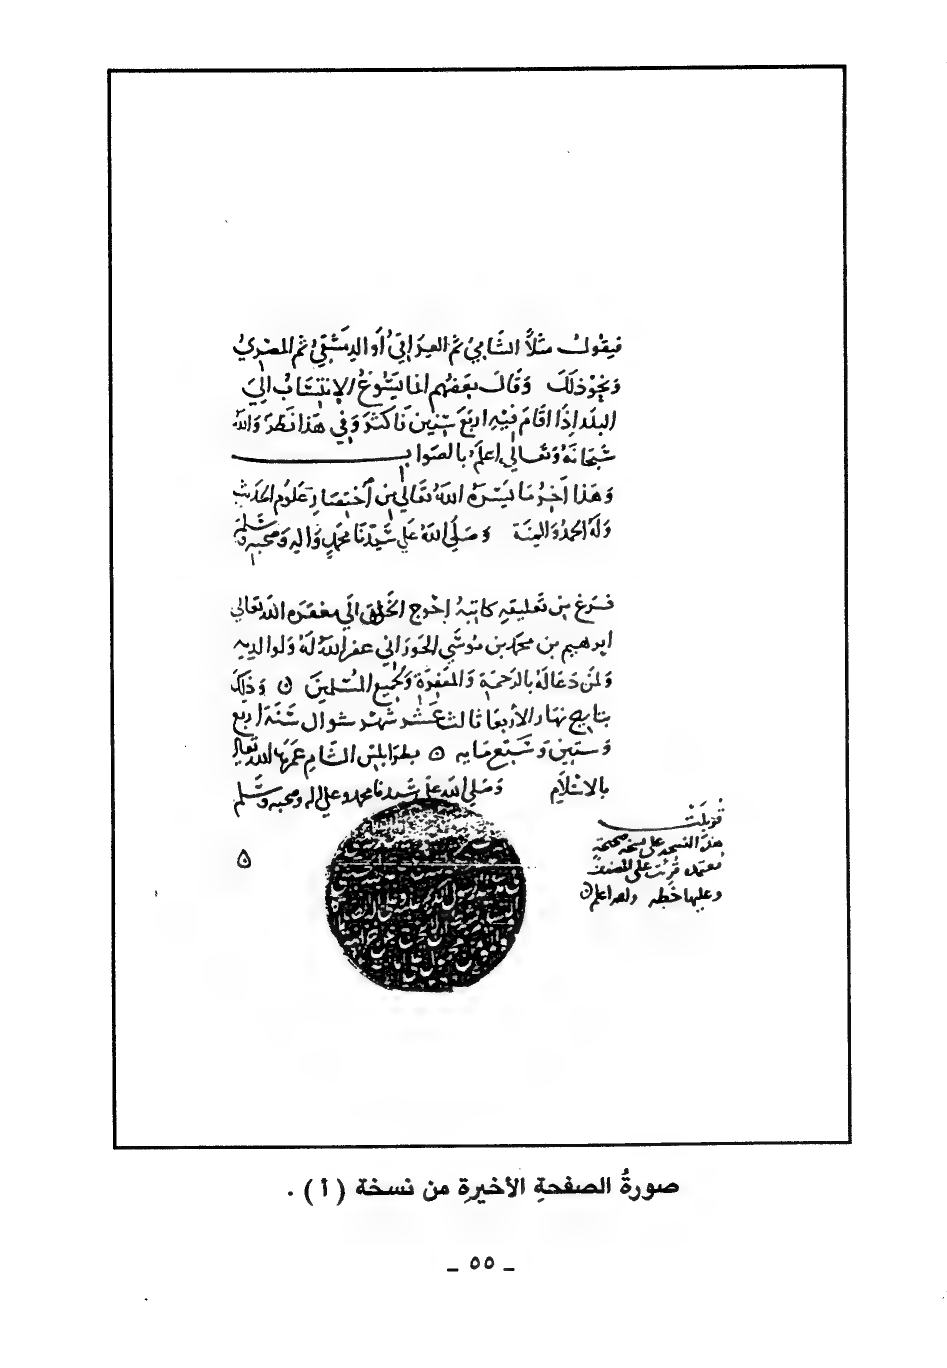 فيقول مثلاً الشَّامِيُّ ثم العِرَاقِيُّ أو الدِمَشْقِيُّ ثم المصريُّ
وَنحو ذلكَ وَقَالَ بَعضُهُم إنما يَسُوغُ الإنتِسَابُ إلى
البلد إذَا اقَامَ فِيهِ اربَعَ سِنِينَ فَأكثَرَ وَفي هَذا نَظَرٌ وَالله
سُبحَانَهُ وَتَعَالى اعلَمُ بالصَواب
وَهَذا آخِرُ مَا يَسَّرَهُ اللهُ تَعَالى مِن اختِصَارِ عُلُومِ الحَدِيثِ
وَلَهُ الحمدُ وَالمِنَّة وَصَلَّى اللهُ عَلَى سَيِّدِنَا مُحَمَّدٍ وَآلِهِ وَصَحبِهِ وَسَلَّمَ
فَرَغَ مِن تَعلِيقِهِ كَاتِبُهُ احْوَج الخَلق إلى مغفرة الله تعالى
ابراهيم بن محمد بن مُوسَى عفا اللهُ لَهُ وَلوالديه
وَلمَن دَعَا لَهُ بالرَحمَةِ وَالمَغفِرَةِ وَلجَمِيعِ المُسلِمِينَ وَذلِكَ
بتاريخ نهار الأربعا ثالث عَشر شَهر شوال سَنَة اربع
وَستين وَسَبْعمَايه بطرابلس الشَّام عَمَرَهَا الله تعالى
بالاسْلَام وَصَلى الله على سَيدنا محمد وعلى اله وصحبه وسَلم
قوبلت
هذه النسخه على نسخه صحيحة
مُعتمده قُرئت على المصنف
وعليها خَطه والله اعلم
صورةُ الصفحةِ الأخيرةِ من نسخة ( أ ) .
_ ٥٥ _